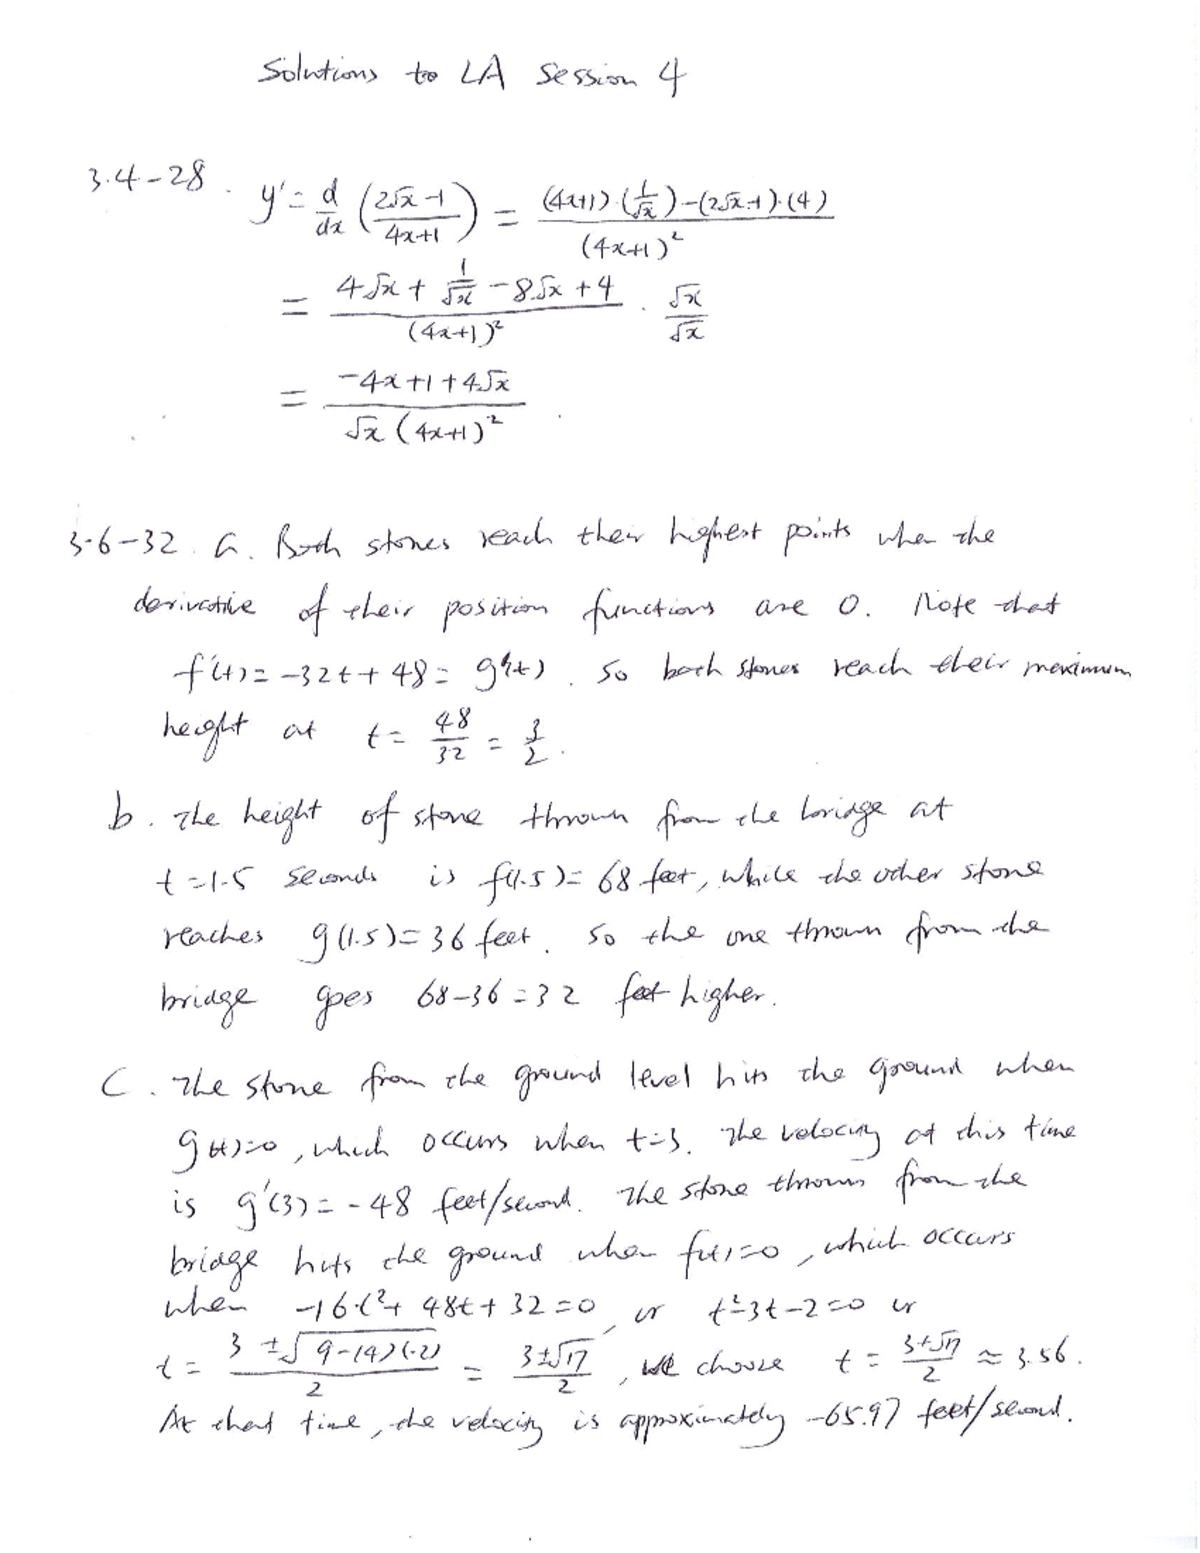 Solutions to LA Session 4
3.4-28. y' = d/dx ((2√x -1)/(4x+1)) = ((4x+1)·(1/√x)-(2√x-1)·(4))/(4x+1)²
= (4√x + 1/√x - 8√x + 4)/(4x+1)² · √x/√x
= (-4x+1+4√x)/(√x (4x+1)²)
3.6-32. a. Both stones reach their highest points when the
derivative of their position functions are 0. Note that
f'(t) = -32t + 48 = g'(t). So both stones reach their maximum
height at t = 48/32 = 3/2.
b. The height of stone thrown from the bridge at
t=1.5 seconds is f(1.5) = 68 feet, while the other stone
reaches g(1.5) = 36 feet. So the one thrown from the
bridge goes 68-36 = 32 feet higher.
C. The stone from the ground level hits the ground when
g(t)=0, which occurs when t=3. The velocity at this time
is g'(3) = -48 feet/second. The stone thrown from the
bridge hits the ground when f(t)=0, which occurs
when -16t² + 48t + 32 = 0, or t²-3t-2=0 or
t = (3 ± √(9-(4)(-2)))/2 = (3±√17)/2, we choose t = (3+√17)/2 ≈ 3.56.
At that time, the velocity is approximately -65.97 feet/second.